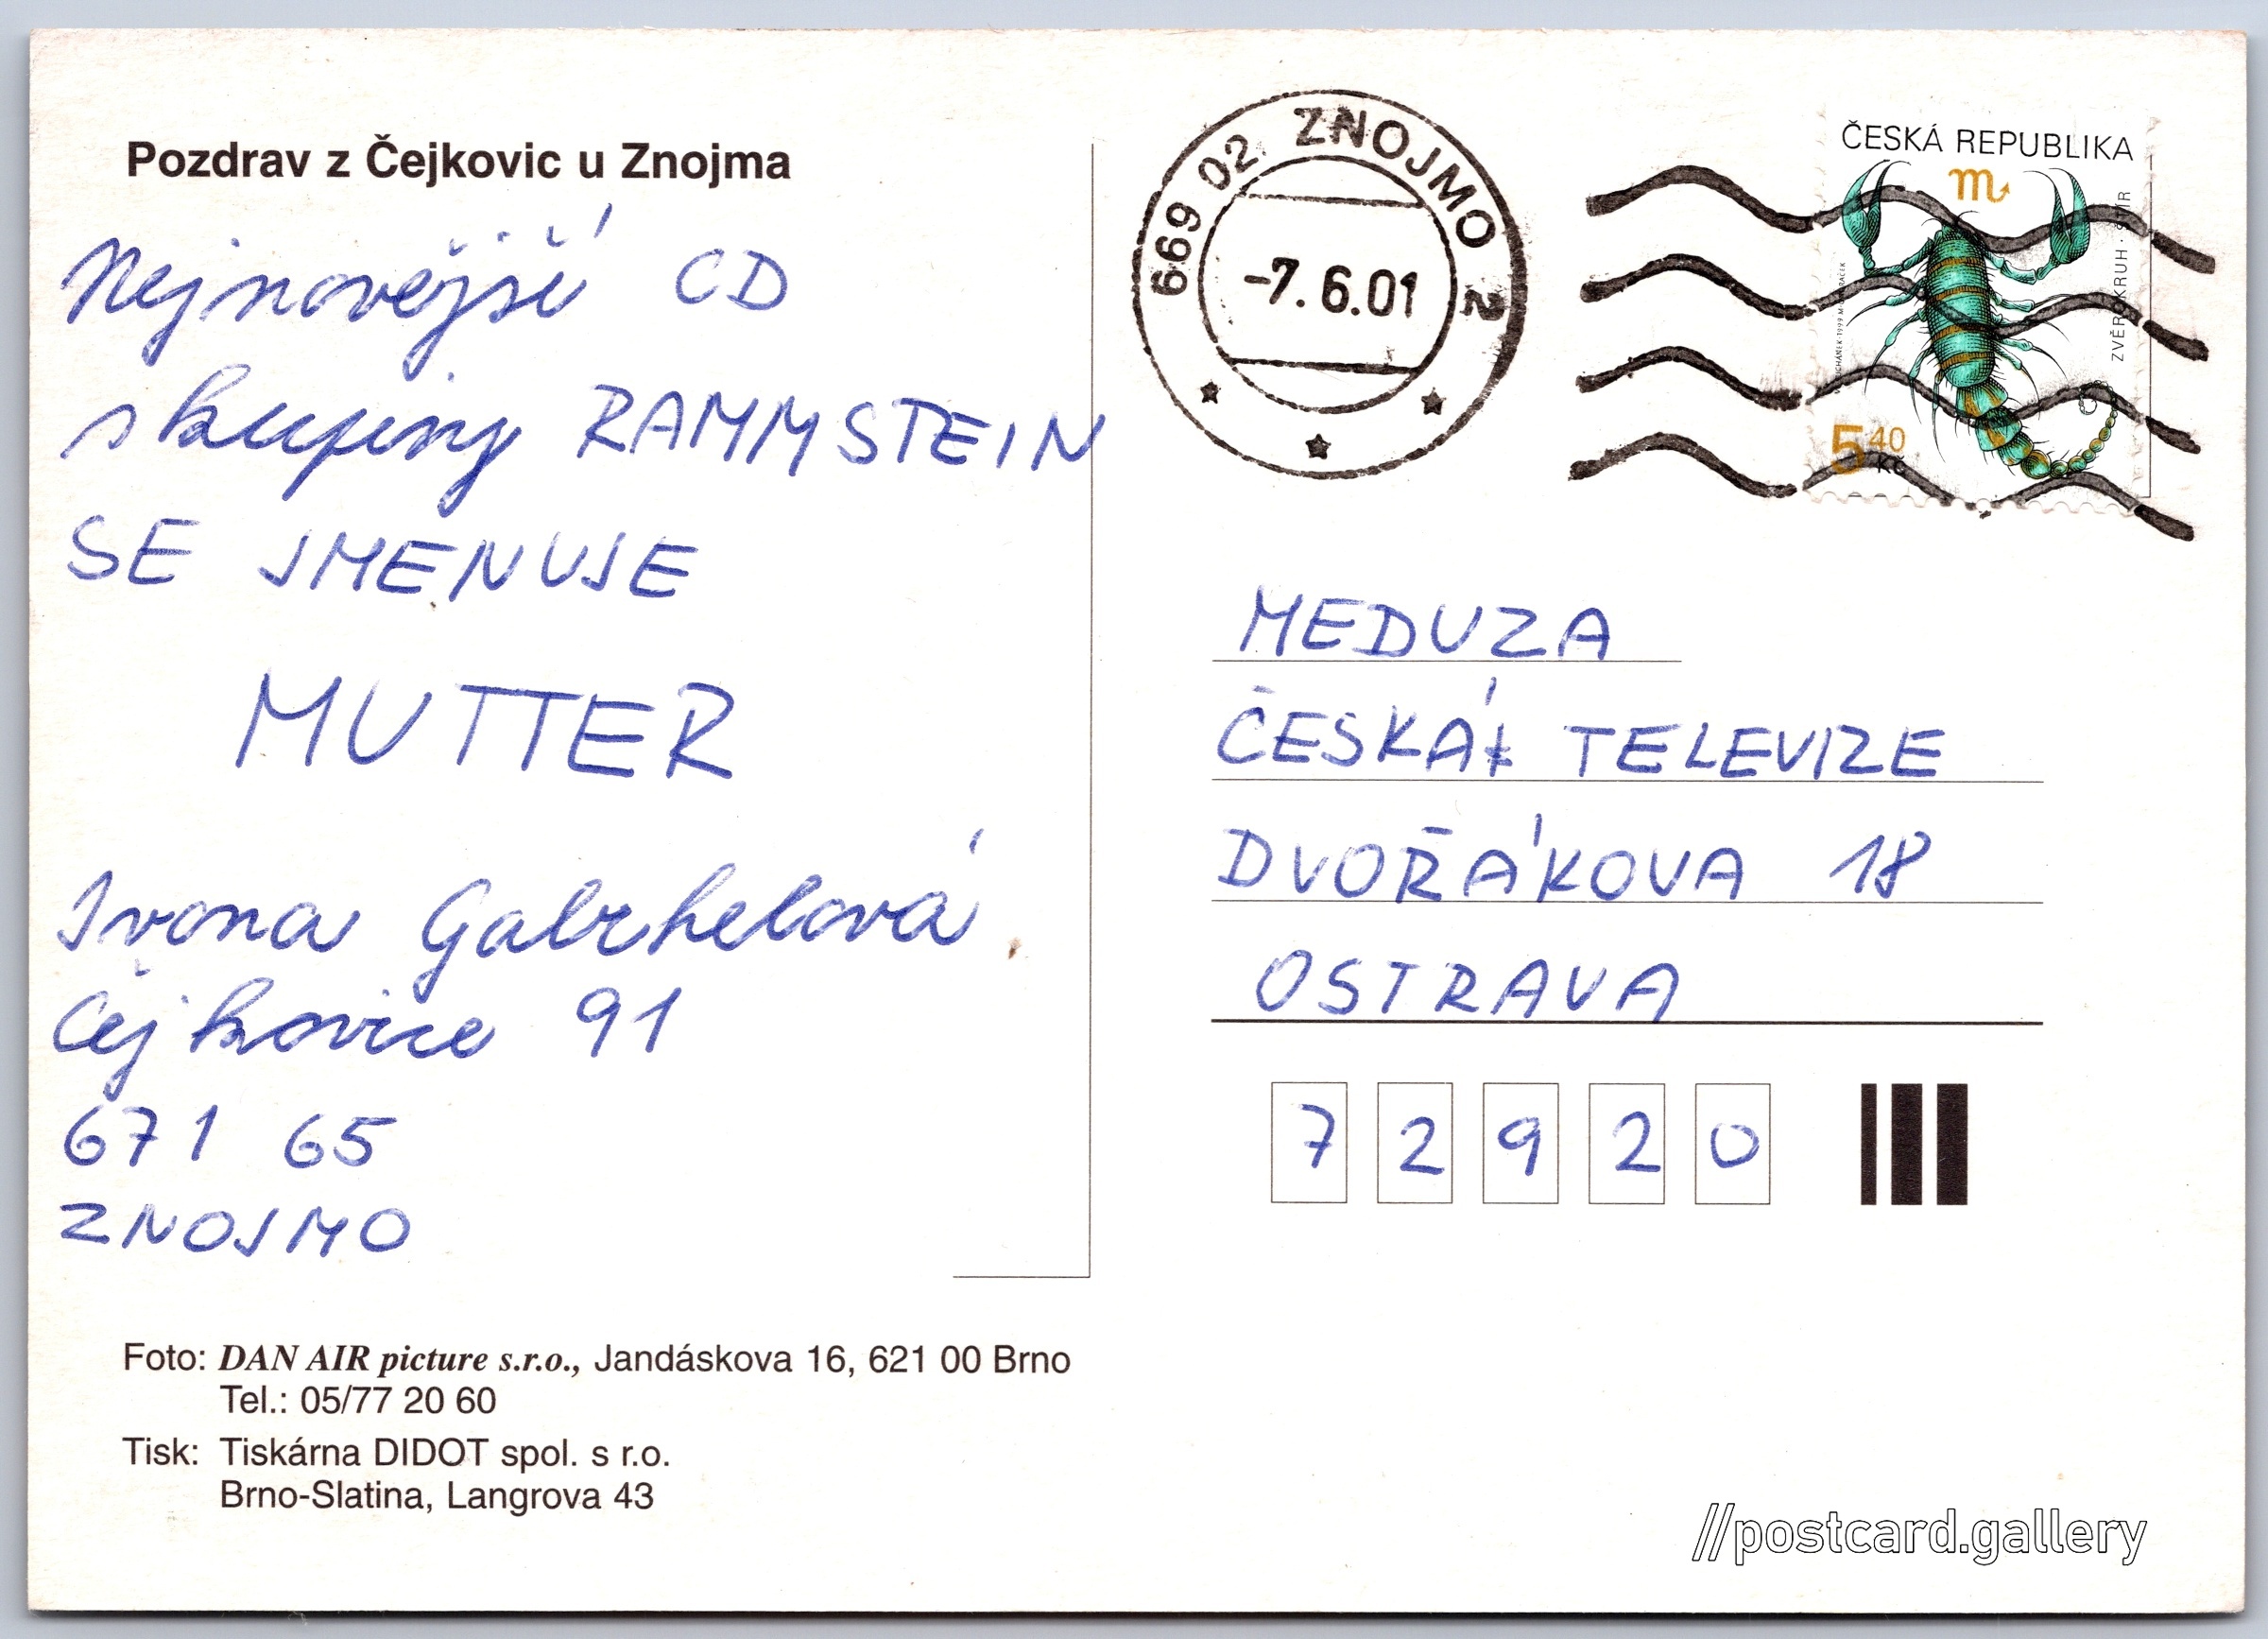 Pozdrav z Čejkovic u Znojma
Nejnovější CD
skupiny RAMMSTEIN
SE JMENUJE
MUTTER
Ivona Gabrhelová
Čejkovice 91
671 65
ZNOJMO
Foto: DAN AIR picture s.r.o., Jandáskova 16, 621 00 Brno
Tel.: 05/77 20 60
Tisk: Tiskárna DIDOT spol. s r.o.
Brno-Slatina, Langrova 43
669 02 ZNOJMO 2
-7.6.01
ČESKÁ REPUBLIKA
ZVĚROKRUH · ŠTÍR
5 40 Kč
MEDUZA
ČESKÁ TELEVIZE
DVOŘÁKOVA 18
OSTRAVA
7 2 9 2 0
//postcard.gallery